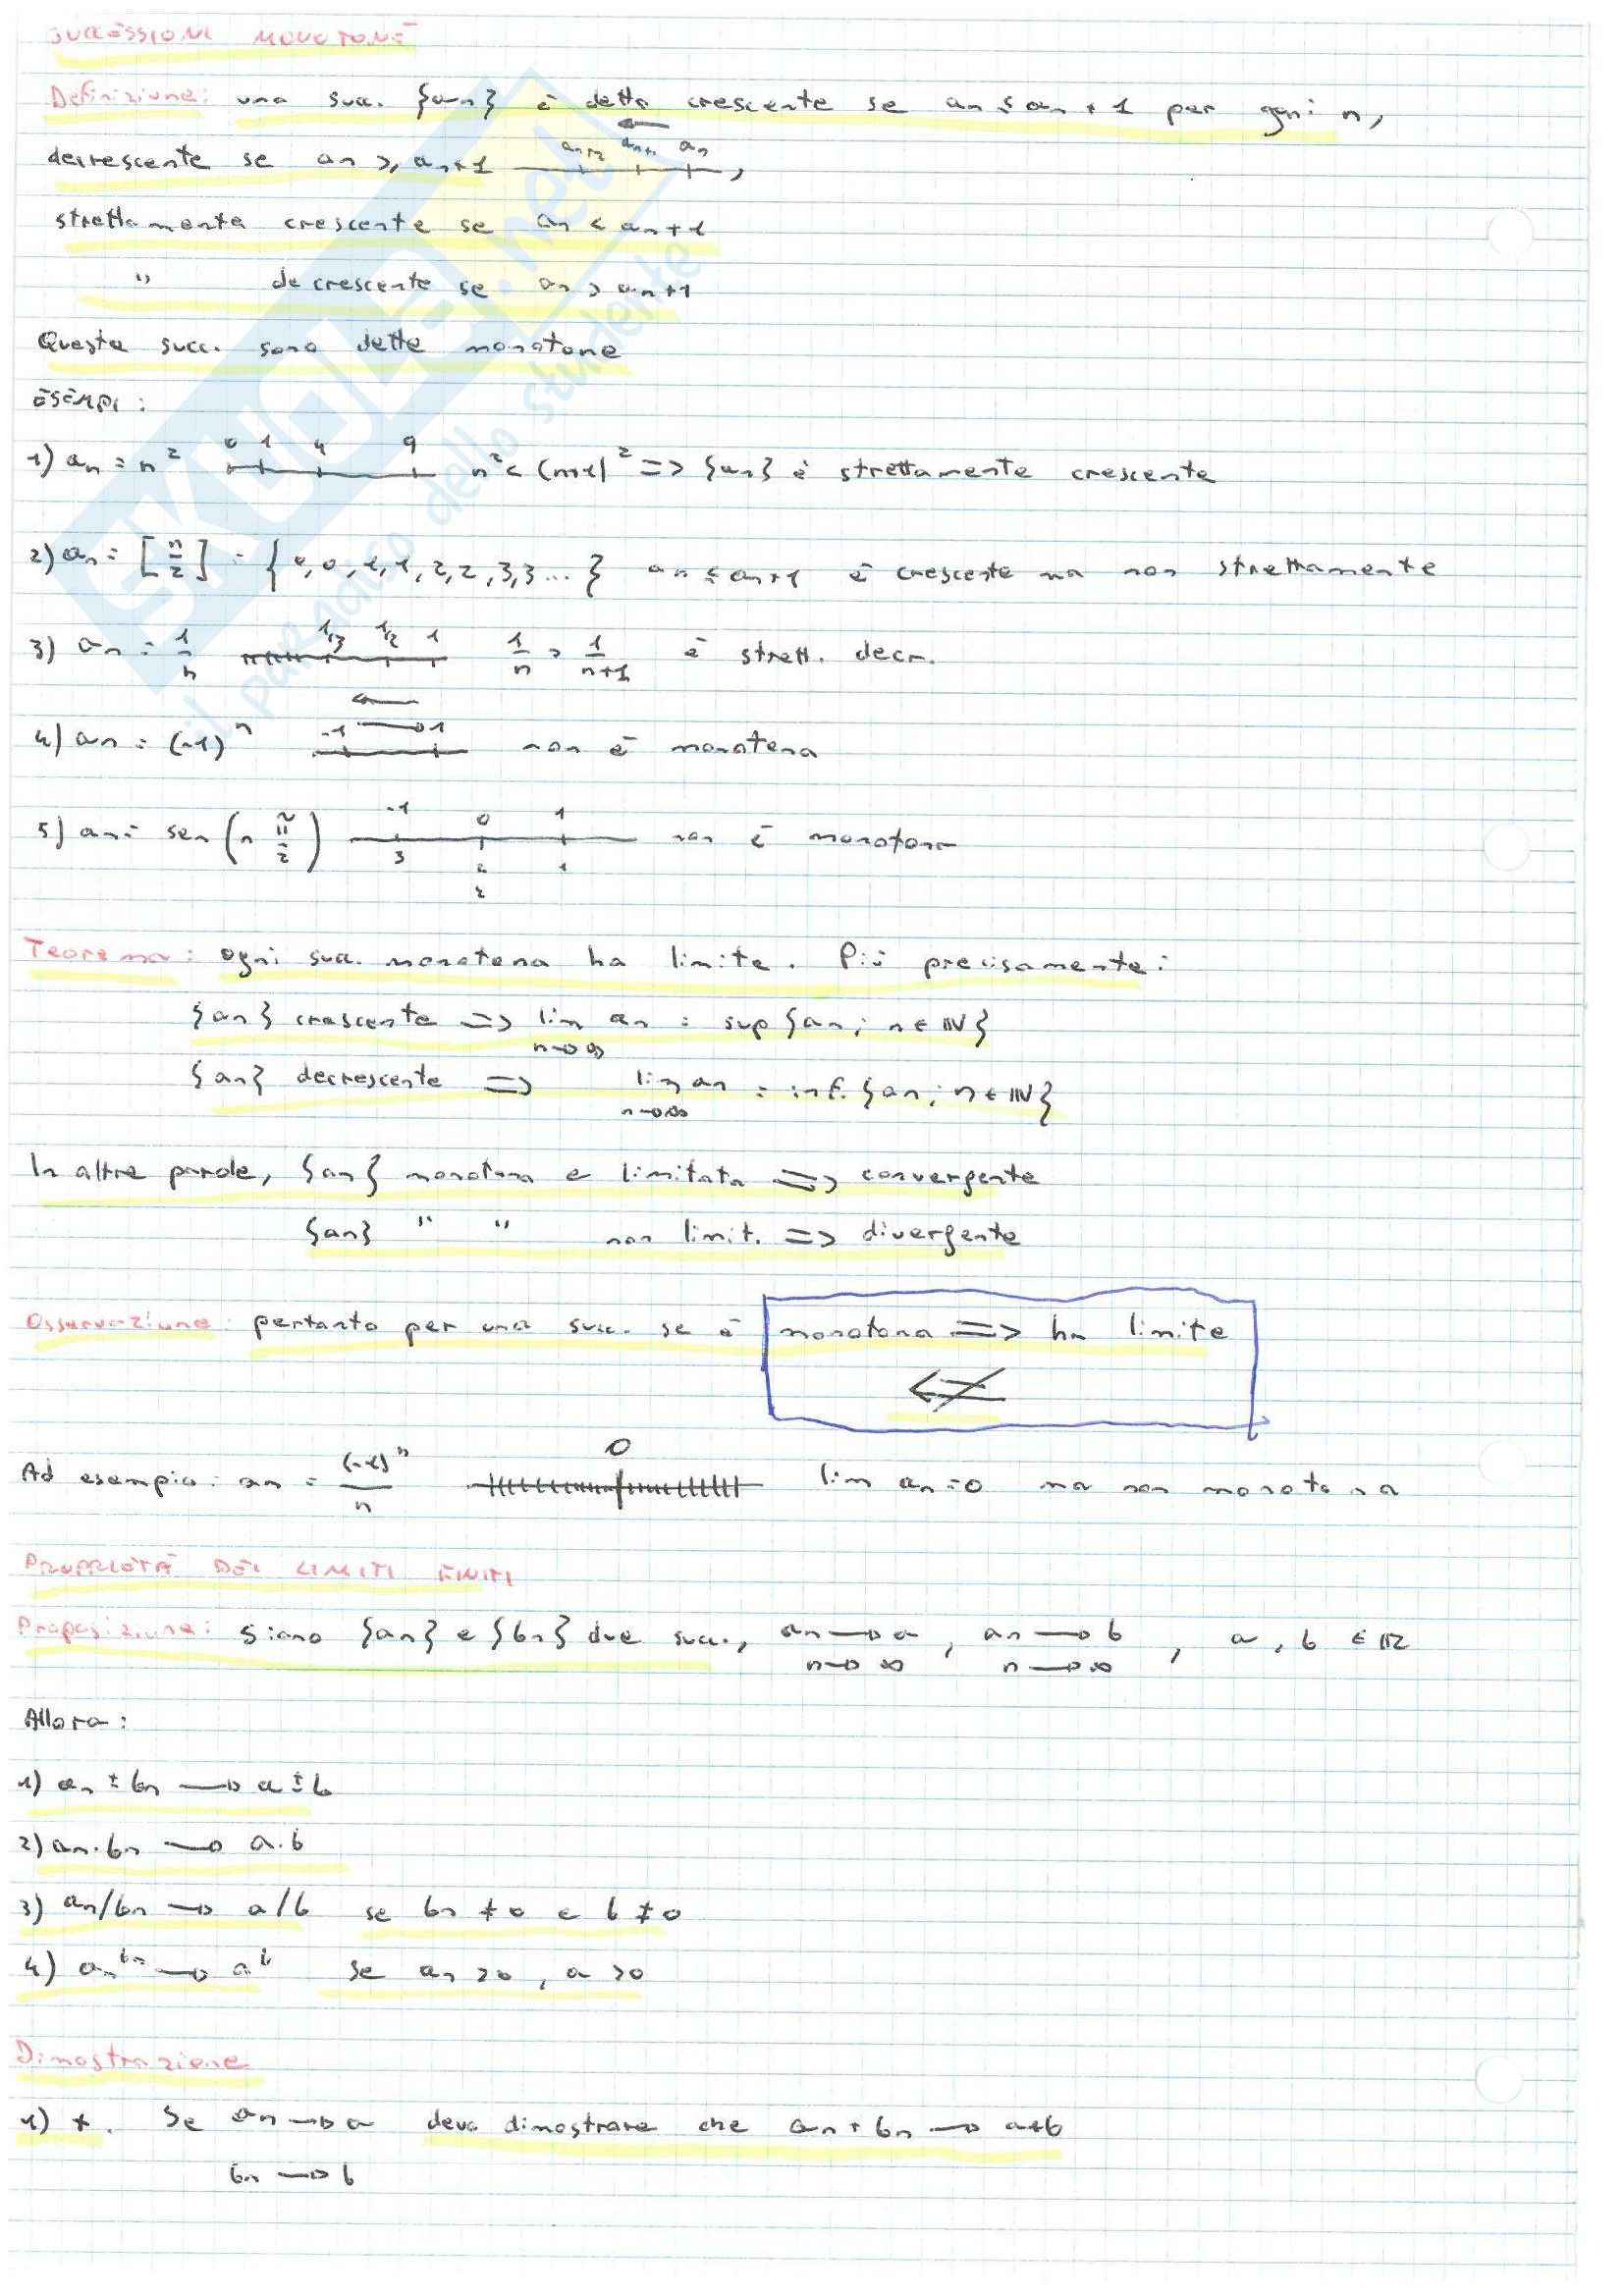 SUCCESSIONI MONOTONE
Definizione: una succ. {an} è detta crescente se an ≤ an + 1 per ogni n,
decrescente se an ≥ an+1 an+2 an+1 an ,
strettamente crescente se an < an+1
" decrescente se an > an+1
Queste succ. sono dette monotone
ESEMPI:
1) an = n² 0 1 4 9 n² < (n+1)² => {an} è strettamente crescente
2) an = [n/2] = {0,0,1,1,2,2,3,3...} an ≤ an+1 è crescente ma non strettamente
3) an = 1/n 1/3 1/2 1 1/n > 1/n+1 è strett. decr.
4) an = (-1)ⁿ -1 1 non è monotona
5) an = sen (n π/2) -1 0 1 non è monotona
3 1
2
Teorema: ogni succ. monotona ha limite. Più precisamente:
{an} crescente => lim an = sup {an; n ∈ ℕ}
n→∞
{an} decrescente => lim an = inf. {an; n ∈ ℕ}
n→∞
In altre parole, {an} monotona e limitata => convergente
{an} " " non limit. => divergente
Osservazione: pertanto per una succ. se è monotona => ha limite
⇍
Ad esempio: an = (-1)ⁿ/n 0 lim an = 0 ma non monotona
PROPRIETÀ DEI LIMITI FINITI
Proposizione: Siano {an} e {bn} due succ., an → a , an → b , a, b ∈ ℝ
n→∞ n→∞
Allora:
1) an ± bn → a ± b
2) an·bn → a·b
3) an/bn → a/b se bn ≠ 0 e b ≠ 0
4) an^bn → a^b se an > 0, a > 0
Dimostrazione
1) +. Se an → a devo dimostrare che an + bn → a+b
bn → b
SKUOLA.net
il paradiso dello studente